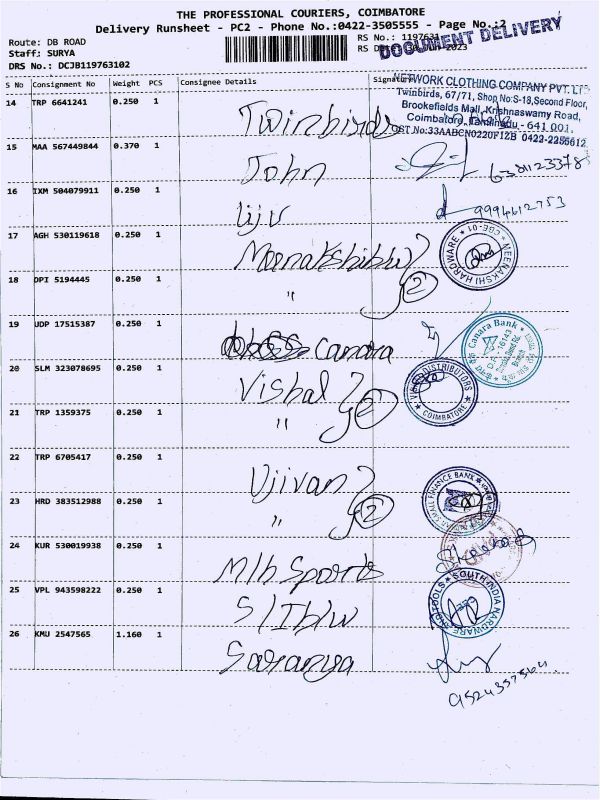 THE PROFESSIONAL COURIERS, COIMBATORE
Delivery Runsheet - PC2 - Phone No.:0422-3505555 - Page No.:2
Route: DB ROAD
Staff: SURYA
DRS No.: DCJB119763102
RS No.:
DOCUMENT DELIVERY
S No Consignment No Weight PCS Consignee Details Signature
NETWORK CLOTHING COMPANY PVT. LTD
Twinbirds, 67/71, Shop No:S-18, Second Floor,
Brookefields Mall, Krishnaswamy Road,
Coimbatore, Tamilnadu - 641 001.
GST No:33AABCN0220F1ZB 0422-2256612
14 TRP 6641241 0.250 1 Twinbirds
15 MAA 567449844 0.370 1 John
16 IXM 504079911 0.250 1 Lijv
17 AGH 530119618 0.250 1
MEENAKSHI HARDWARE CBE-01
18 DPI 5194445 0.250 1 " 2
19 UDP 17515387 0.250 1 Canara
Canara Bank
20 SLM 323078695 0.250 1 Vishal
DISTRIBUTORS COIMBATORE
21 TRP 1359375 0.250 1 " 2
22 TRP 6705417 0.250 1 Ujivan
SMALL FINANCE BANK
23 HRD 383512988 0.250 1 " 2
24 KUR 530019938 0.250 1 M/h Sports
25 VPL 943598222 0.250 1
SOUTH INDIA HARDWARE
26 KMU 2547565 1.160 1 Saranya